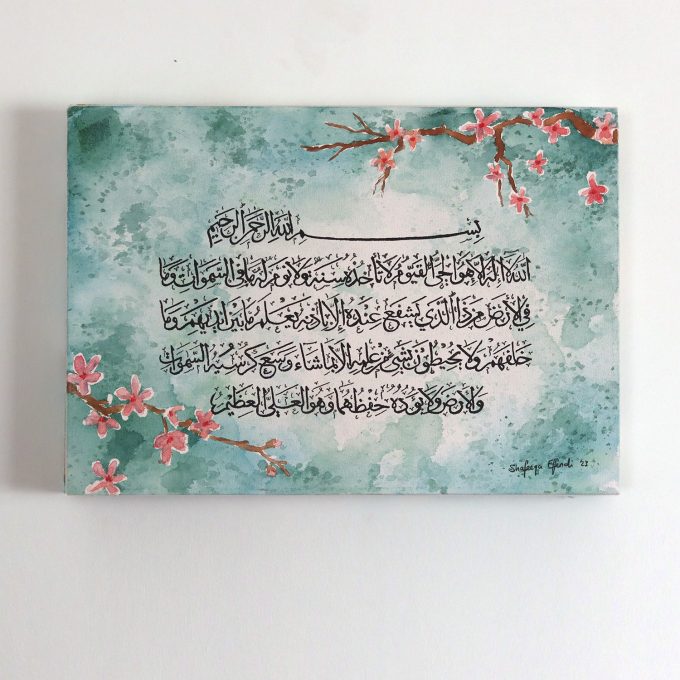 بسم الله الرحمن الرحيم
الله لا إله إلا هو الحي القيوم لا تأخذه سنة ولا نوم له ما في السموات وما
في الأرض من ذا الذي يشفع عنده إلا بإذنه يعلم ما بين أيديهم وما
خلفهم ولا يحيطون بشيء من علمه إلا بما شاء وسع كرسيه السموات
والأرض ولا يؤده حفظهما وهو العلي العظيم
Shafeeqa Efendi '23